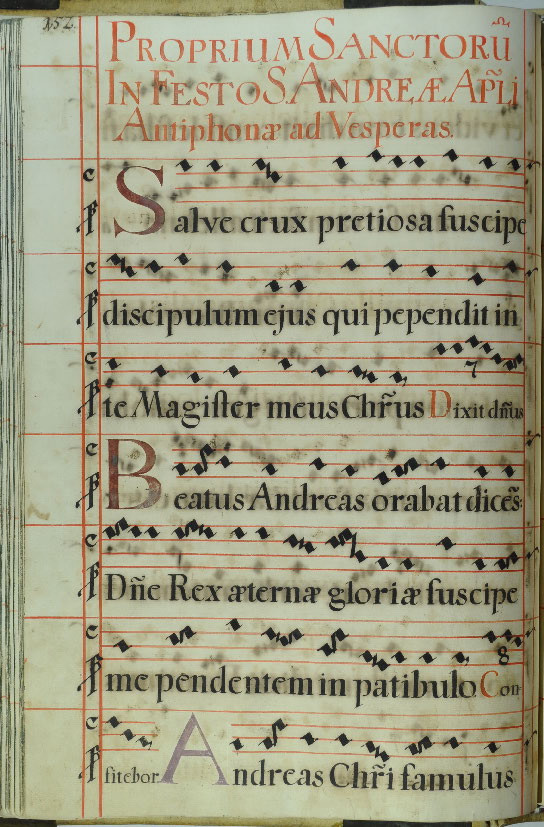 152.
PROPRIUM SANCTORŨ
IN FESTO S. ANDREÆ AP̃LI
Antiphonæ ad Vesperas.
Salve crux pretiosa suscipe
discipulum ejus qui pependit in
te Magister meus Chr̃us Dixit dñus
Beatus Andreas orabat dicẽs:
Dñe Rex æternæ gloriæ suscipe
7
me pendentem in patibulo Con
8
fitebor Andreas Chr̃i famulus